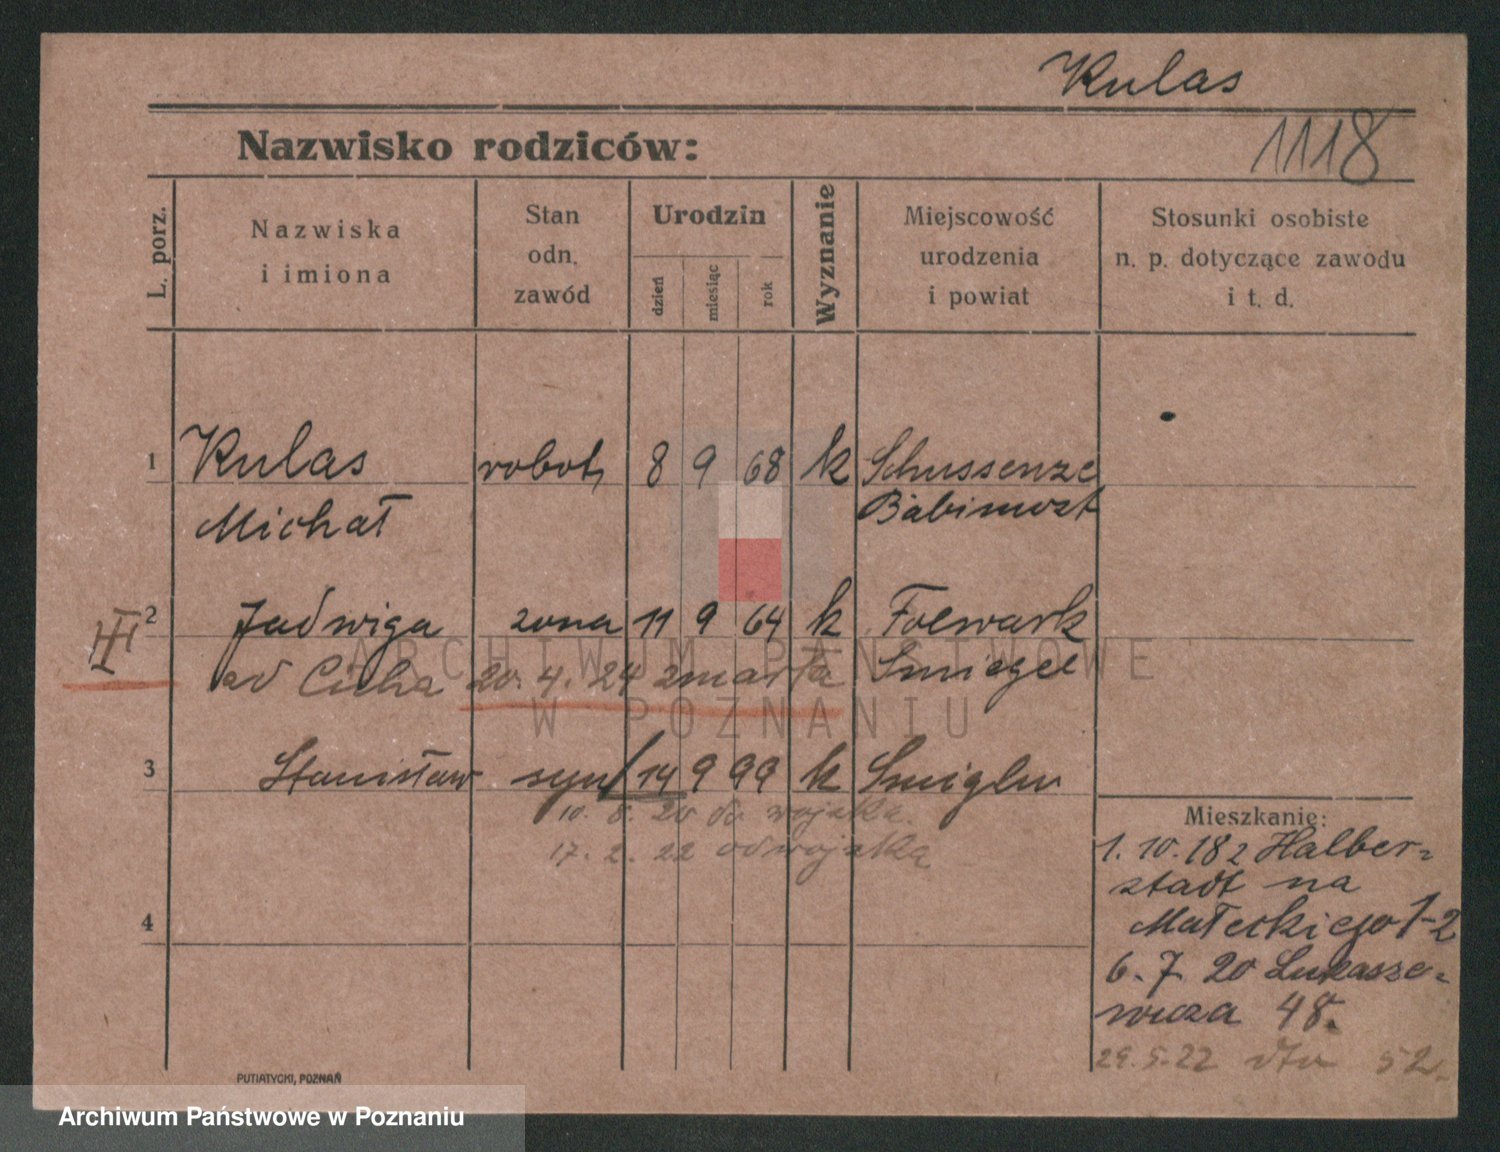 Kulas
Nazwisko rodziców:
1118
L. porz.
Nazwiska
i imiona
Stan
odn.
zawód
Urodzin
dzień
miesiąc
rok
Wyznanie
Miejscowość
urodzenia
i powiat
Stosunki osobiste
n. p. dotyczące zawodu
i t. d.
1 Kulas robotn 8 9 68 k Schussenze
Michał Babimost
2 Jadwiga żona 11 9 64 k Folwark
III
od Cicha 20. 4. 24 zmarła Smiegel
3 Stanisław syn 14 9 99 k Smiglu
10. 8. 20 do wojska.
17. 2. 22 od wojska
4
Mieszkanie:
1. 10. 18 z Halber-
stadt na
Małeckiego 1-2
6. 7. 20 Lukasze-
wicza 48.
29. 5. 22 dto 52.
PUTIATYCKI, POZNAŃ
ARCHIWUM PAŃSTWOWE
W POZNANIU
Archiwum Państwowe w Poznaniu